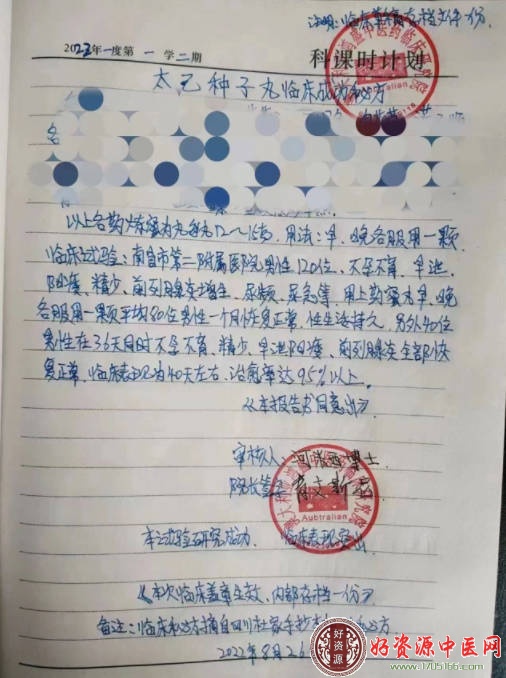 注明:临床单独存档文件一份
2022年一度第一学二期 科课时计划
太乙种子丸临床成功秘方
各
以上各药炼蜜为丸每丸12～15
用法:早、晚各服用一颗
临床试验:南昌市第二附属医院男性120位、不孕不育、早泄
阳痿、精少、前列腺炎增生、尿频、尿急等,用上药蜜丸早、晚
各服用一颗平均80位男性一个月恢复正常,性生活持久,另外40位
男性在36天时不孕不育、精少、早泄阳痿、前列腺炎全部恢
复正常,临床表现为40天左右,治愈率达95%以上。
《本报告书同意出》
审核人: 博士
院长签字:
Aubtralian
本试验研究成功 临床表现突出
《本次临床盖章生效、内部存档一份》
备注:临床秘方摘自四川杜家手抄 方
2022年8月26
好资源
好资源中医网
www.1705166.com